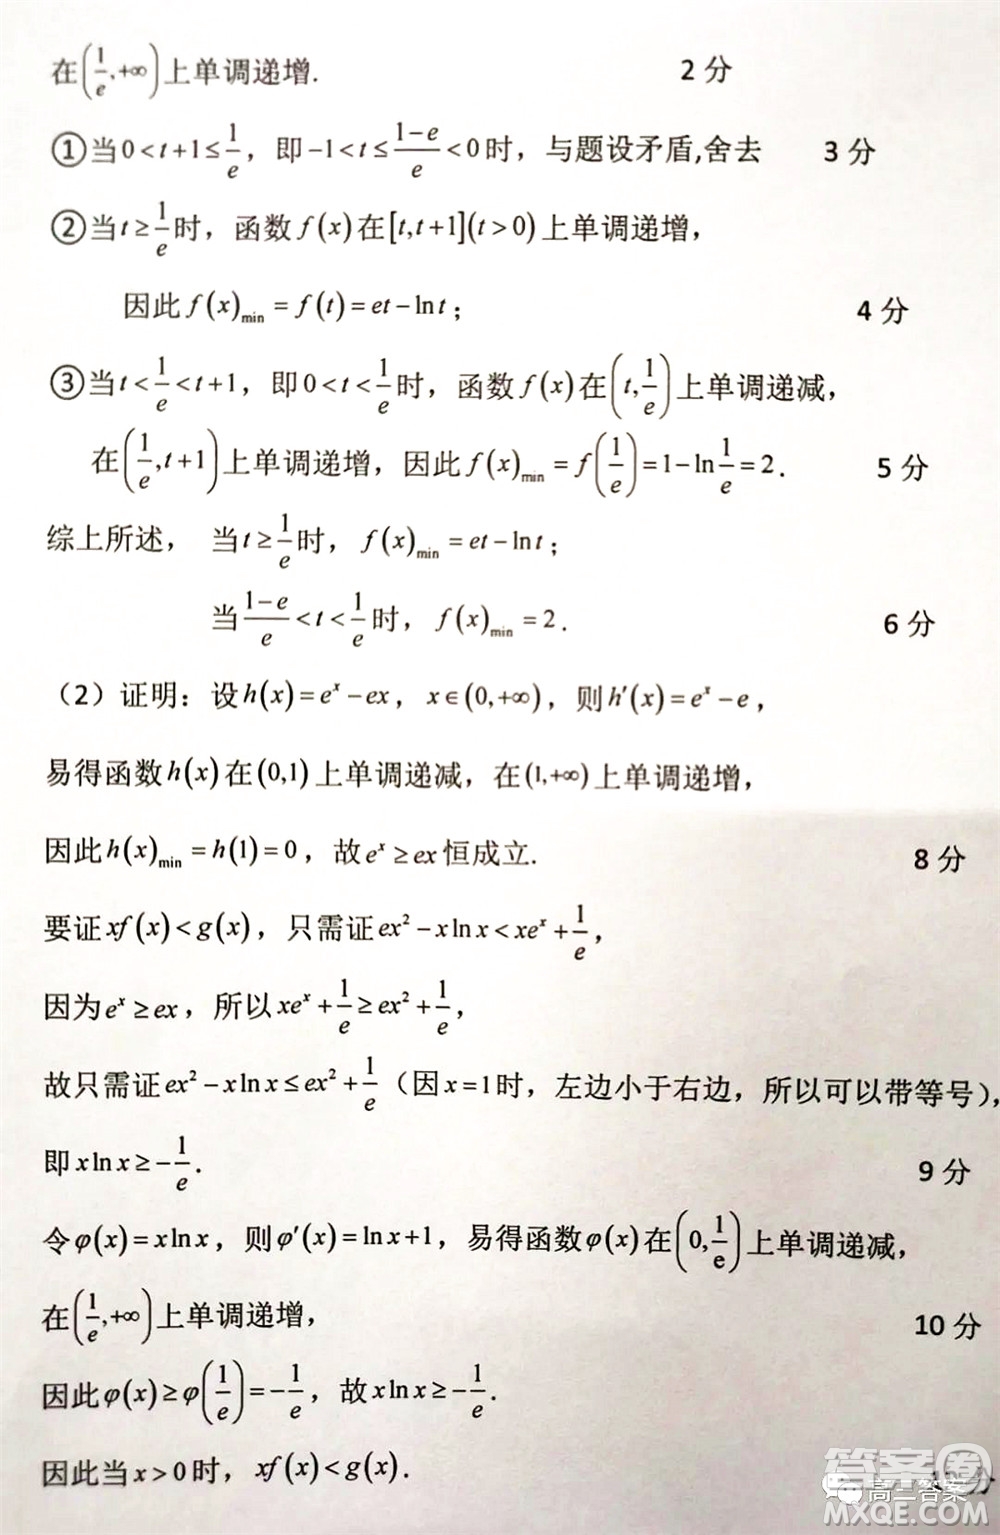 在(1/e,+∞)上单调递增. 2分
①当0<t+1≤1/e，即-1<t≤(1-e)/e<0时，与题设矛盾,舍去 3分
②当t≥1/e时，函数f(x)在[t,t+1](t>0)上单调递增，
因此f(x)min=f(t)=et-lnt； 4分
③当t<1/e<t+1，即0<t<1/e时，函数f(x)在(t,1/e)上单调递减，
在(1/e,t+1)上单调递增，因此f(x)min=f(1/e)=1-ln1/e=2. 5分
综上所述， 当t≥1/e时，f(x)min=et-lnt；
当(1-e)/e<t<1/e时，f(x)min=2. 6分
（2）证明：设h(x)=eˣ-ex，x∈(0,+∞)，则h′(x)=eˣ-e，
易得函数h(x)在(0,1)上单调递减，在(1,+∞)上单调递增，
因此h(x)min=h(1)=0，故eˣ≥ex恒成立. 8分
要证xf(x)<g(x)，只需证ex²-xlnx<xeˣ+1/e，
因为eˣ≥ex，所以xeˣ+1/e≥ex²+1/e，
故只需证ex²-xlnx≤ex²+1/e（因x=1时，左边小于右边，所以可以带等号），
即xlnx≥-1/e. 9分
令φ(x)=xlnx，则φ′(x)=lnx+1，易得函数φ(x)在(0,1/e)上单调递减，
在(1/e,+∞)上单调递增， 10分
因此φ(x)≥φ(1/e)=-1/e，故xlnx≥-1/e.
因此当x>0时，xf(x)<g(x). 分
答案圈
高三答案
MXQE.COM